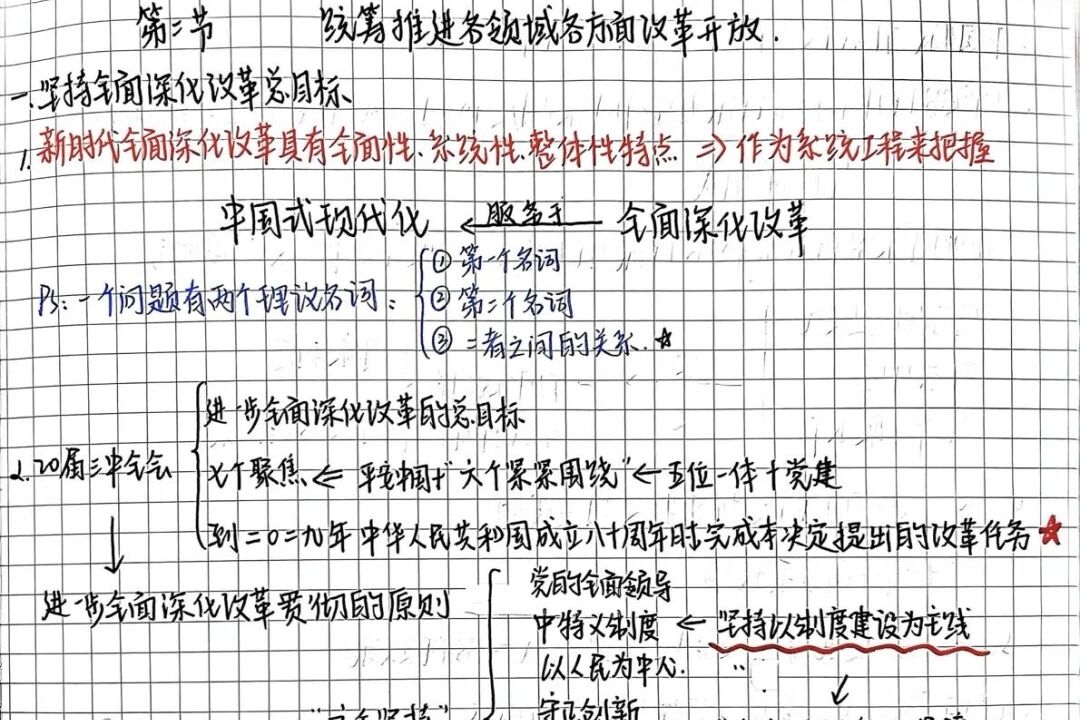 第二节 统筹推进各领域各方面改革开放.
一.坚持全面深化改革总目标
1.新时代全面深化改革具有全面性、系统性、整体性特点 ⇒ 作为系统工程来把握
中国式现代化 ← 服务于 全面深化改革
Ps:一个问题有两个理议名词:
①第一个名词
②第二个名词
③二者之间的关系.☆
2.20届三中全会
进一步全面深化改革的总目标
七个聚焦 ⇐ 平安中国+"六个紧紧围绕" ← 五位一体+党建
到二〇二九年中华人民共和国成立八十周年时完成本决定提出的改革任务★
↓
进一步全面深化改革贯彻的原则
党的全面领导
中特义制度 ← 坚持以制度建设为主线
以人民为中心.
守正创新
"六个坚持"